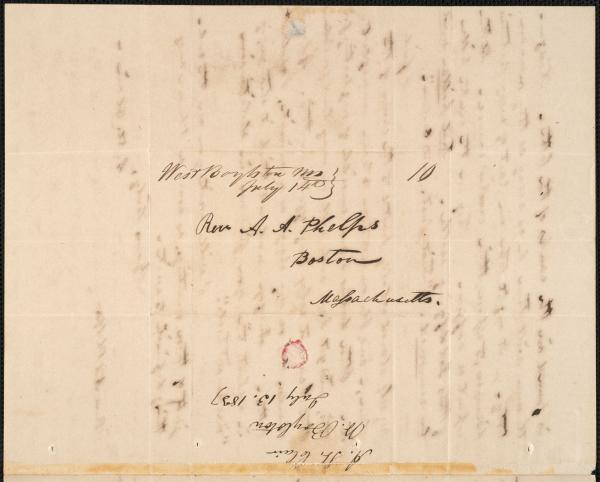 West Boylston Mss
July 14th
10
Rev A. A. Phelps
Boston
Massachusetts.
A. St. Clair
W. Boylston
July 13. 1837